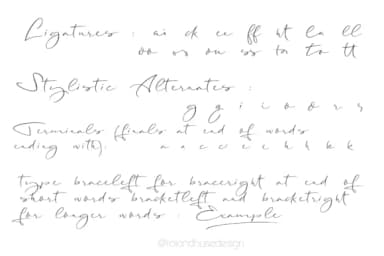 Ligatures : ai ck ee ff ht la ll
oo os ou ss ta to tt
Stylistic Alternates :
g g i i o o r s
Terminals (finals at end of words
ending with): a a c c e e h h k k
type braceleft for braceright at end of
short words bracketleft and bracketright
for longer words : Example
@rolandhusedesign